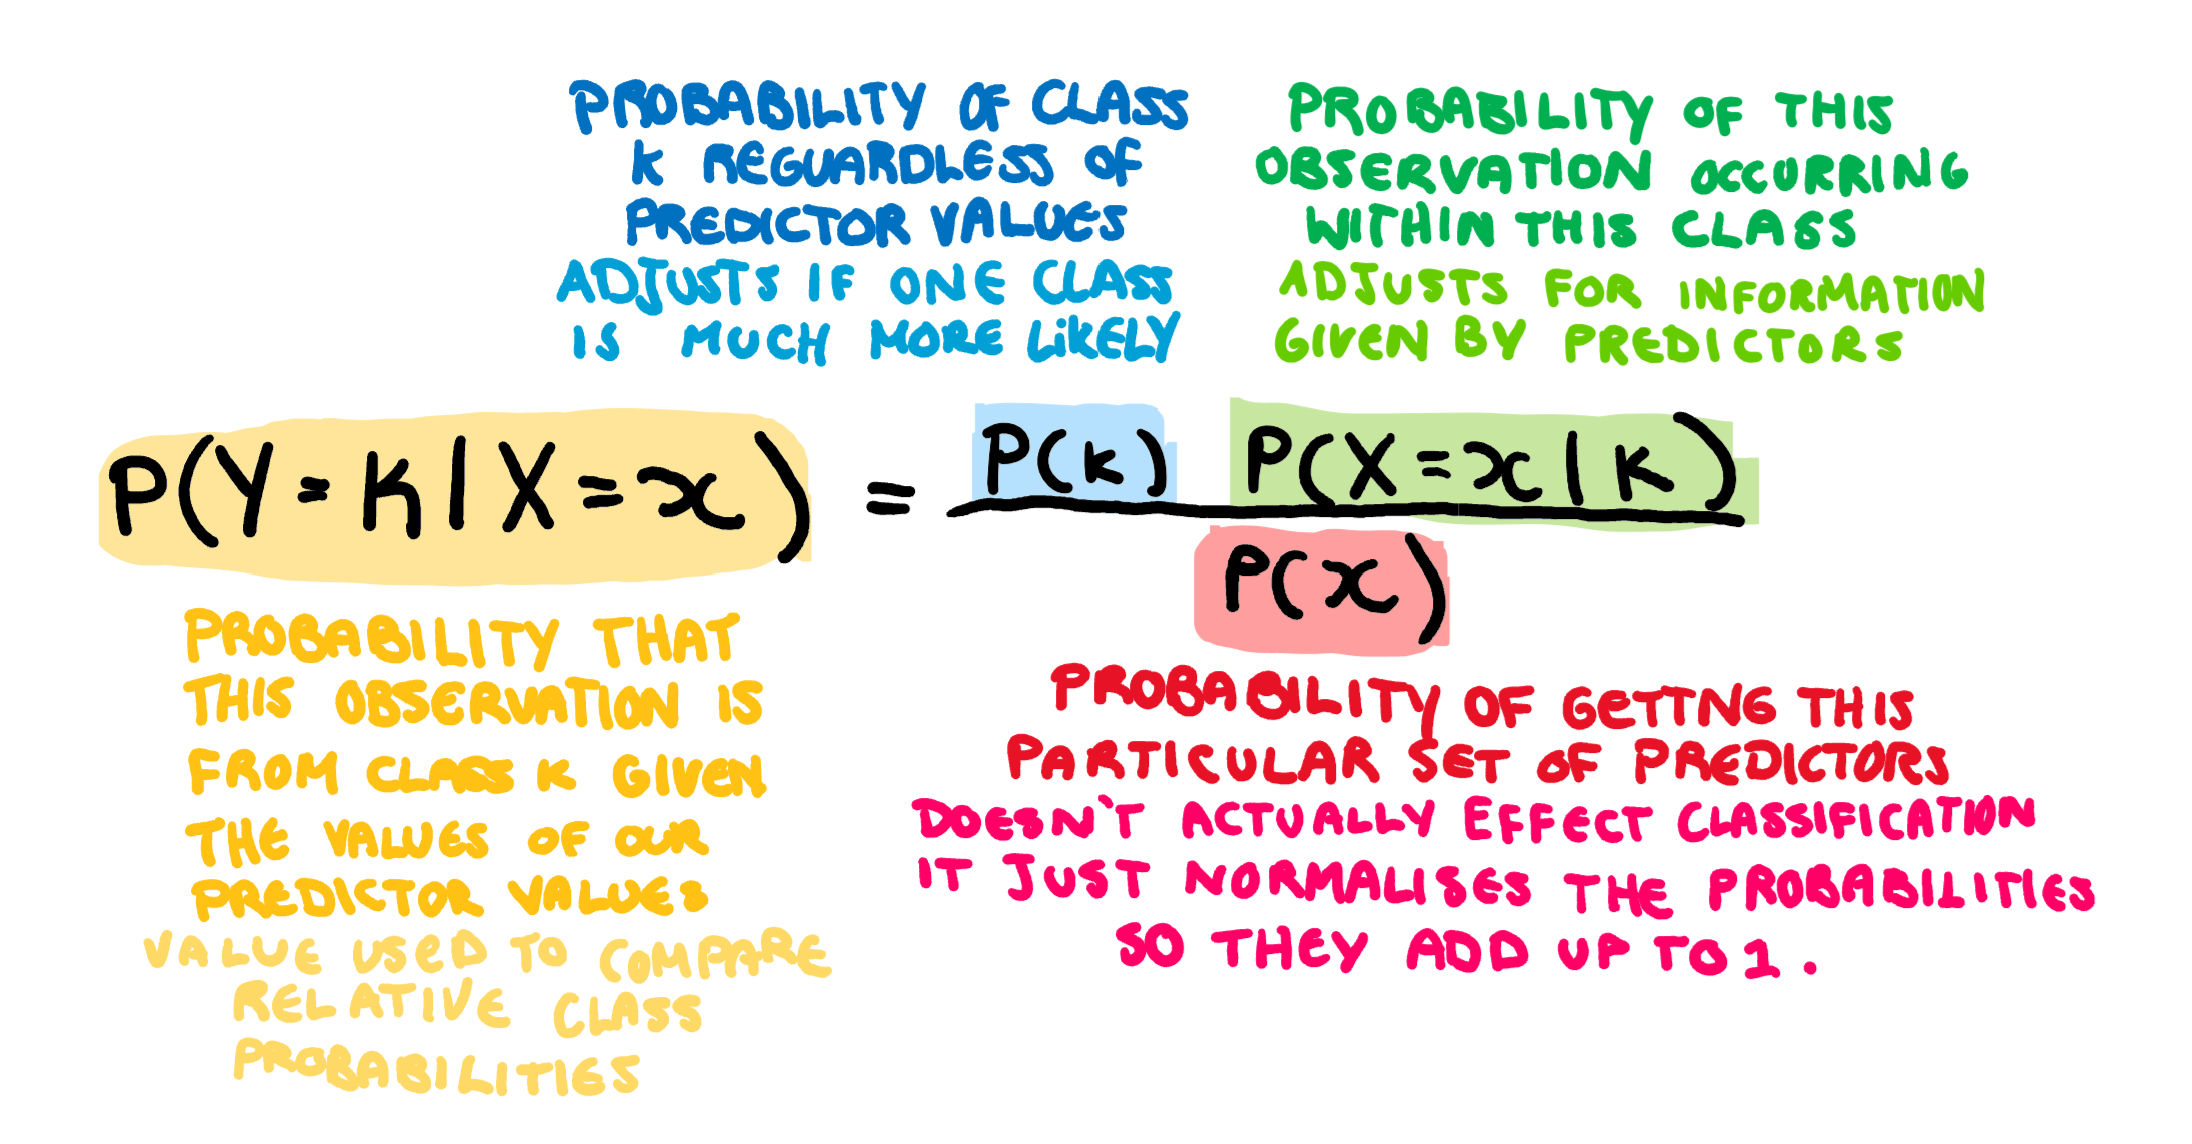 PROBABILITY OF CLASS
K REGUARDLESS OF
PREDICTOR VALUES
ADJUSTS IF ONE CLASS
IS MUCH MORE LiKELY
PROBABILITY OF THIS
OBSERVATION OCCURRING
WITHIN THIS CLASS
ADJUSTS FOR INFORMATION
GIVEN BY PREDICTORS
P(Y=K|X=x) = P(k) P(X=x|k)
P(x)
PROBABILITY THAT
THIS OBSERVATION IS
FROM CLASS K GIVEN
THE VALUES OF OUR
PREDICTOR VALUES
VALUE USED TO COMPARE
RELATIVE CLASS
PROBABILITIES
PROBABILITY OF GETTNG THIS
PARTICULAR SET OF PREDICTORS
DOESN'T ACTUALLY EFFECT CLASSIFICATION
IT JUST NORMALISES THE PROBABILITIES
SO THEY ADD UP TO 1.